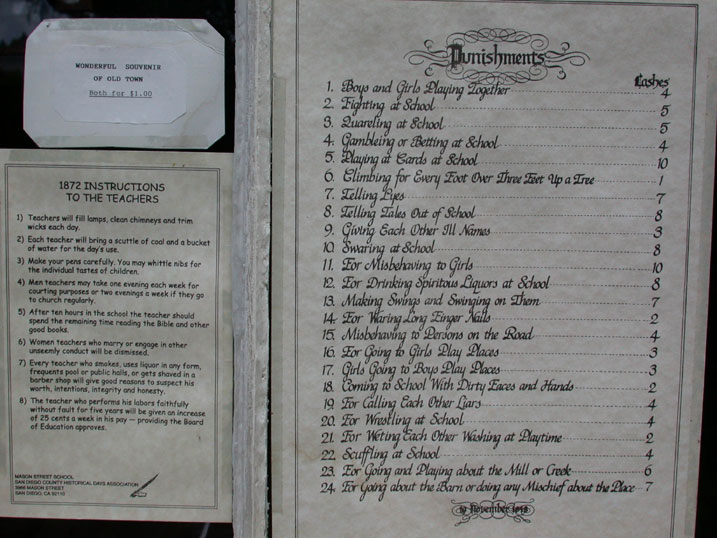 WONDERFUL SOUVENIR
OF OLD TOWN
Both for $1.00
1872 INSTRUCTIONS
TO THE TEACHERS
1) Teachers will fill lamps, clean chimneys and trim
wicks each day.
2) Each teacher will bring a scuttle of coal and a bucket
of water for the day's use.
3) Make your pens carefully. You may whittle nibs for
the individual tastes of children.
4) Men teachers may take one evening each week for
courting purposes or two evenings a week if they go
to church regularly.
5) After ten hours in the school the teacher should
spend the remaining time reading the Bible and other
good books.
6) Women teachers who marry or engage in other
unseemly conduct will be dismissed.
7) Every teacher who smokes, uses liquor in any form,
frequents pool or public halls, or gets shaved in a
barber shop will give good reasons to suspect his
worth, intentions, integrity and honesty.
8) The teacher who performs his labors faithfully
without fault for five years will be given an increase
of 25 cents a week in his pay — providing the Board
of Education approves.
MASON STREET SCHOOL
SAN DIEGO COUNTY HISTORICAL DAYS ASSOCIATION
3966 MASON STREET
SAN DIEGO, CA 92110
Punishments
Lashes
1. Boys and Girls Playing Together 4
2. Fighting at School 5
3. Quareling at School 5
4. Gambleing or Betting at School 4
5. Playing at Cards at School 10
6. Climbing for Every Foot Over Three Feet Up a Tree 1
7. Telling Lyes 7
8. Telling Tales Out of School 8
9. Giving Each Other Ill Names 3
10. Swaring at School 8
11. For Misbehaving to Girls 10
12. For Drinking Spiritous Liquors at School 8
13. Making Swings and Swinging on Them 7
14. For Waring Long Finger Nails 2
15. Misbehaving to Persons on the Road 4
16. For Going to Girls Play Places 3
17. Girls Going to Boys Play Places 3
18. Coming to School With Dirty Faces and Hands 2
19. For Calling Each Other Liars 4
20. For Wrestling at School 4
21. For Weting Each Other Washing at Playtime 2
22. Scuffling at School 4
23. For Going and Playing about the Mill or Creek 6
24. For Going about the Barn or doing any Mischief about the Place 7
10 November 1848